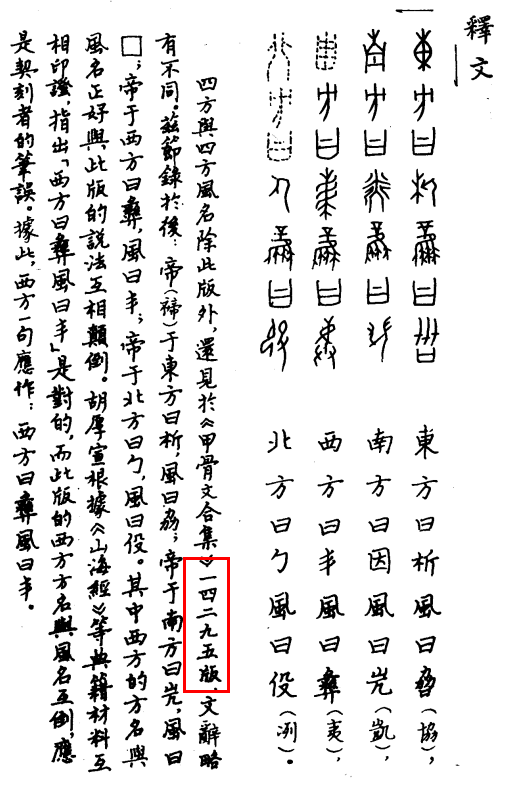 釋文
東方曰析風曰劦（協），
南方曰因風曰（凱），
西方曰丯風曰彝（夷），
北方曰勹風曰伇（冽）。
四方與四方風名除此版外，還見於《甲骨文合集》一四二九五版，文辭略
有不同。茲節錄於後：帝（禘）于東方曰析，風曰劦；帝于南方曰，風曰
□；帝于西方曰彝，風曰丯；帝于北方曰勹，風曰伇。其中西方的方名與
風名正好與此版的説法互相顛倒。胡厚宣根據《山海經》等典籍材料互
相印證，指出「西方曰彝風曰丯」是對的，而此版的西方方名與風名互倒，應
是契刻者的筆誤。據此，西方一句應作：西方曰彝風曰丯。